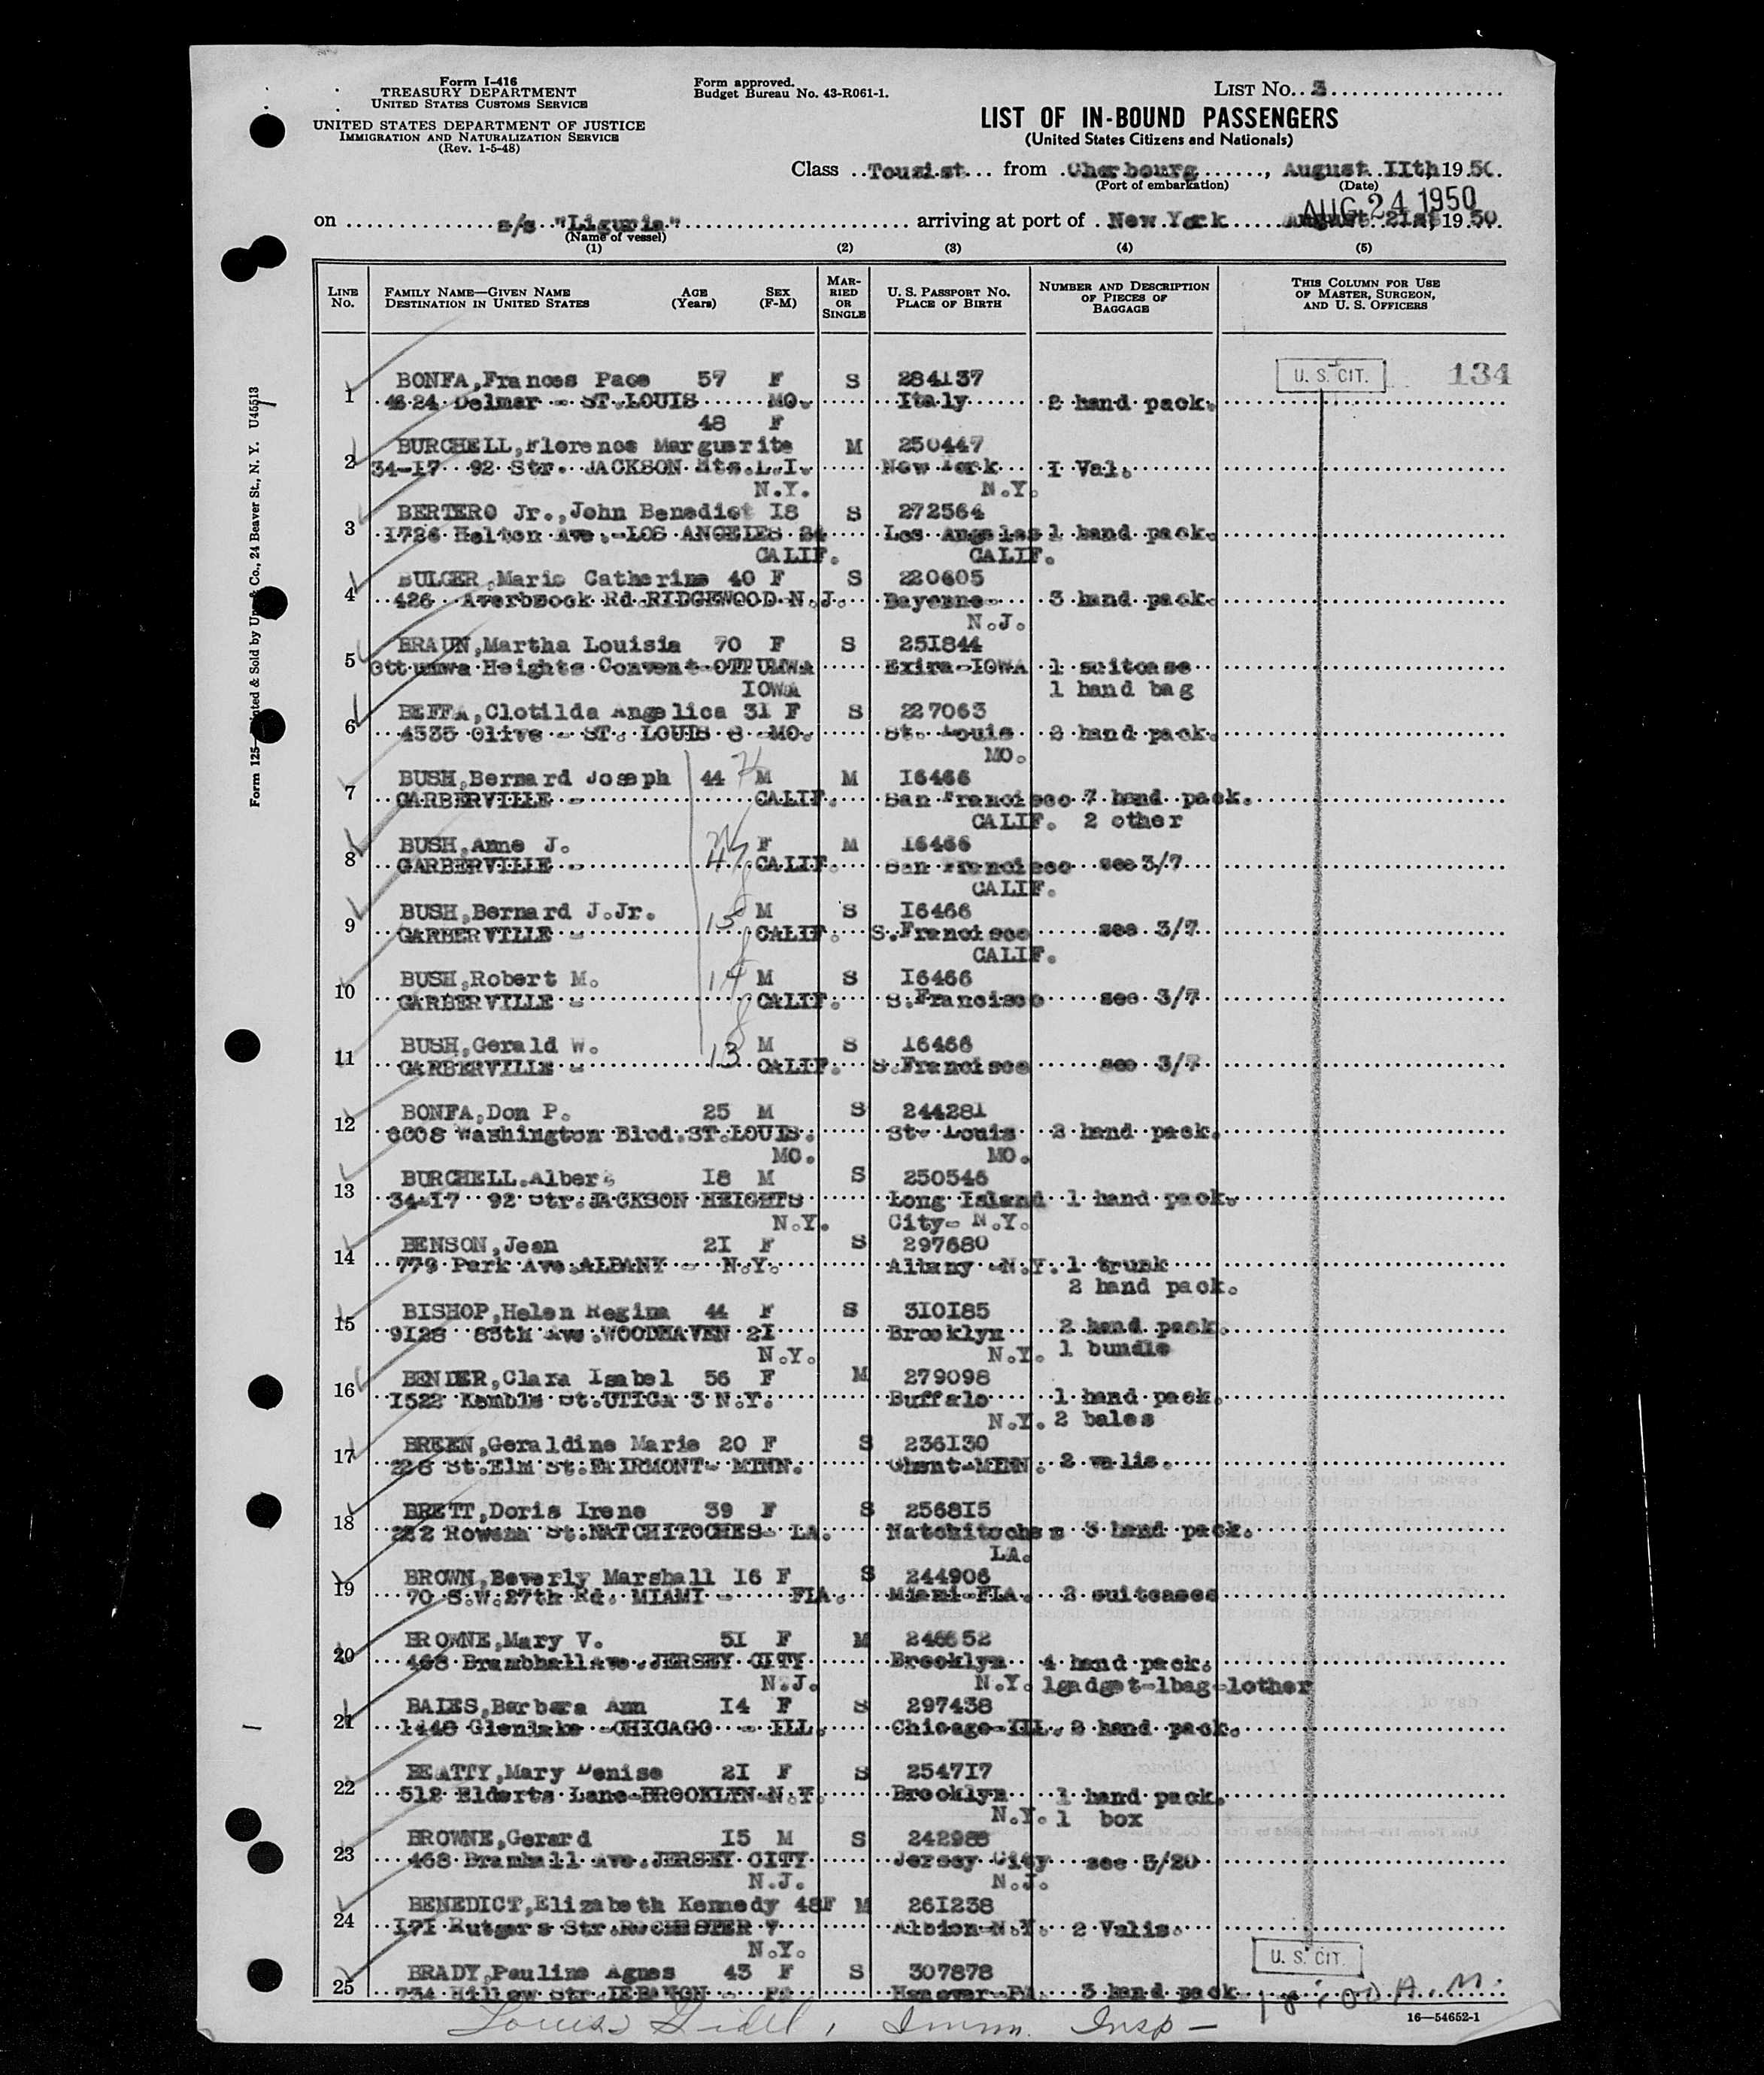 Form I-416
TREASURY DEPARTMENT
UNITED STATES CUSTOMS SERVICE
UNITED STATES DEPARTMENT OF JUSTICE
IMMIGRATION AND NATURALIZATION SERVICE
(Rev. 1-5-48)
Form approved.
Budget Bureau No. 43-R061-1.
LIST No. 3
LIST OF IN-BOUND PASSENGERS
(United States Citizens and Nationals)
Class Tourist from Cherbourg, August IIth, 1950.
(Port of embarkation) (Date)
AUG 24 1950
on s/s "Liguria" arriving at port of New York August 21st, 1950.
(Name of vessel)
(1) (2) (3) (4) (5)
LINE No. FAMILY NAME—GIVEN NAME DESTINATION IN UNITED STATES AGE (Years) SEX (F-M) MARRIED OR SINGLE U. S. PASSPORT NO. PLACE OF BIRTH NUMBER AND DESCRIPTION OF PIECES OF BAGGAGE THIS COLUMN FOR USE OF MASTER, SURGEON, AND U. S. OFFICERS
U. S. CIT. 134
BONFA, Frances Pace 57 F S 284137
1 4624 Delmar - ST.LOUIS MO. Italy 2 hand pack.
48 F
BURCHELL, Florence Marguerite M 250447
2 34-17 92 Str. JACKSON Hts.L.I. New York I Val.
N.Y. N.Y.
BERTERO Jr., John Benedict I8 S 272564
3 1726 Helton Ave.-LOS ANGELES 24 Los Angeles 1 hand pack.
CALIF. CALIF.
BULGER, Marie Catherine 40 F S 220605
4 426 Averbrook Rd.RIDGEWOOD N.J. Bayonne- 3 hand pack.
N.J.
BRAUN, Martha Louisia 70 F S 25I844
5 Ottumwa Heights Convent-OTTUMWA Exira-IOWA 1 suitcase
IOWA 1 hand bag
BEFFA, Clotilda Angelica 3I F S 227063
6 4535 Olive - ST. LOUIS 8 -MO. St. Louis 2 hand pack.
MO.
BUSH, Bernard Joseph 44 M M I6466
7 GARBERVILLE - CALIF. San Francisco 7 hand pack.
CALIF. 2 other
BUSH, Anne J. F M I6466
8 GARBERVILLE - CALIF. San Francisco see 3/7
CALIF.
BUSH, Bernard J.Jr. 15 M S I6466
9 GARBERVILLE - CALIF. S.Francisco see 3/7
CALIF.
BUSH, Robert M. 14 M S I6466
10 GARBERVILLE - CALIF. S.Francisco see 3/7
BUSH, Gerald W. 13 M S I6466
11 GARBERVILLE - CALIF. S.Francisco see 3/7
BONFA, Don P. 25 M S 244281
12 6008 Washington Blvd.ST.LOUIS. St. Louis 2 hand pack.
MO. MO.
BURCHELL.Albert I8 M S 250546
13 34-I7 92 Str.JACKSON HEIGHTS Long Island 1 hand pack.
N.Y. City- N.Y.
BENSON, Jean 2I F S 297680
14 779 Park Ave.ALBANY - N.Y. Albany -N.Y. 1 trunk
2 hand pack.
BISHOP, Helen Regina 44 F S 3I0I85
15 9128 85th Ave.WOODHAVEN 2I Brooklyn 2 hand pack.
N.Y. N.Y. 1 bundle
BENDER, Clara Isabel 56 F M 279098
16 I522 Kemble St.UTICA 3 N.Y. Buffalo 1 hand pack.
N.Y. 2 bales
BREEN, Geraldine Marie 20 F S 236I30
17 226 St.Elm St.FAIRMONT- MINN. Ghent-MINN. 2 valis.
BRETT, Doris Irene 39 F S 2568I5
18 Rowena St.NATCHITOCHES- LA. Natchitoches 3 hand pack.
LA.
BROWN, Beverly Marshall I6 F S 244906
19 70 S.W.27th Rd. MIAMI - FLA. Miami-FLA. 2 suitcases
BROWNE, Mary V. 5I F M 246652
20 468 BrambhallAve.JERSEY CITY Brooklyn 4 hand pack.
N.J. N.Y. 1gadget-1bag-1other
BALES, Barbara Ann I4 F S 297438
21 1448 Glenlake -CHICAGO - ILL. Chicago-ILL. 2 hand pack.
BEATTY, Mary Denise 2I F S 2547I7
22 512 Elderts Lane-BROOKLYN-N.Y. Brooklyn 1 hand pack.
N.Y. 1 box
BROWNE, Gerard I5 M S 242985
23 468 Bramhall Ave.JERSEY CITY Jersey City see 3/20
N.J. N.J.
BENEDICT, Elizabeth Kennedy 48F M 26I238
24 I7I Rutgers Str.ROCHESTER 7 Albion-N.Y. 2 Valis.
N.Y.
BRADY, Pauline Agnes 43 F S 307878
25 734 Willow Str.LEBANON - PA Hanover-PA. 3 hand pack
U. S. CIT.
A.M.
Louis , Imm. Insp -
16—54652-1
Form 125—Printed & Sold by Unz & Co., 24 Beaver St., N. Y. U45513